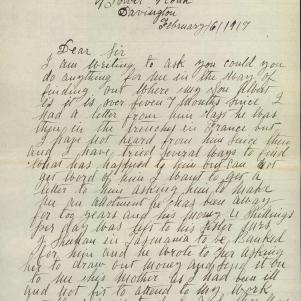 Tower Road
Davington
February /6/1917
Dear Sir
I am writing to ask you could you
do anything for me in the way of
finding out where my son Albert
is it is over seven 7 months since I
had a letter from him says he was
then in the trenches in France but
I have not heard from him since then
and I have tried several ways to find
what has happened to him but can not
get word of him I want to get a
letter to him asking him to make
me an allotment he has been away
for too years and his money 4 shillings
per day was left to his sister Mrs
in Tasmania to be banked
for him and he wrote to her asking
her to draw out money and send it on
to me his mother as I had been ill
and not fit to attend to my work